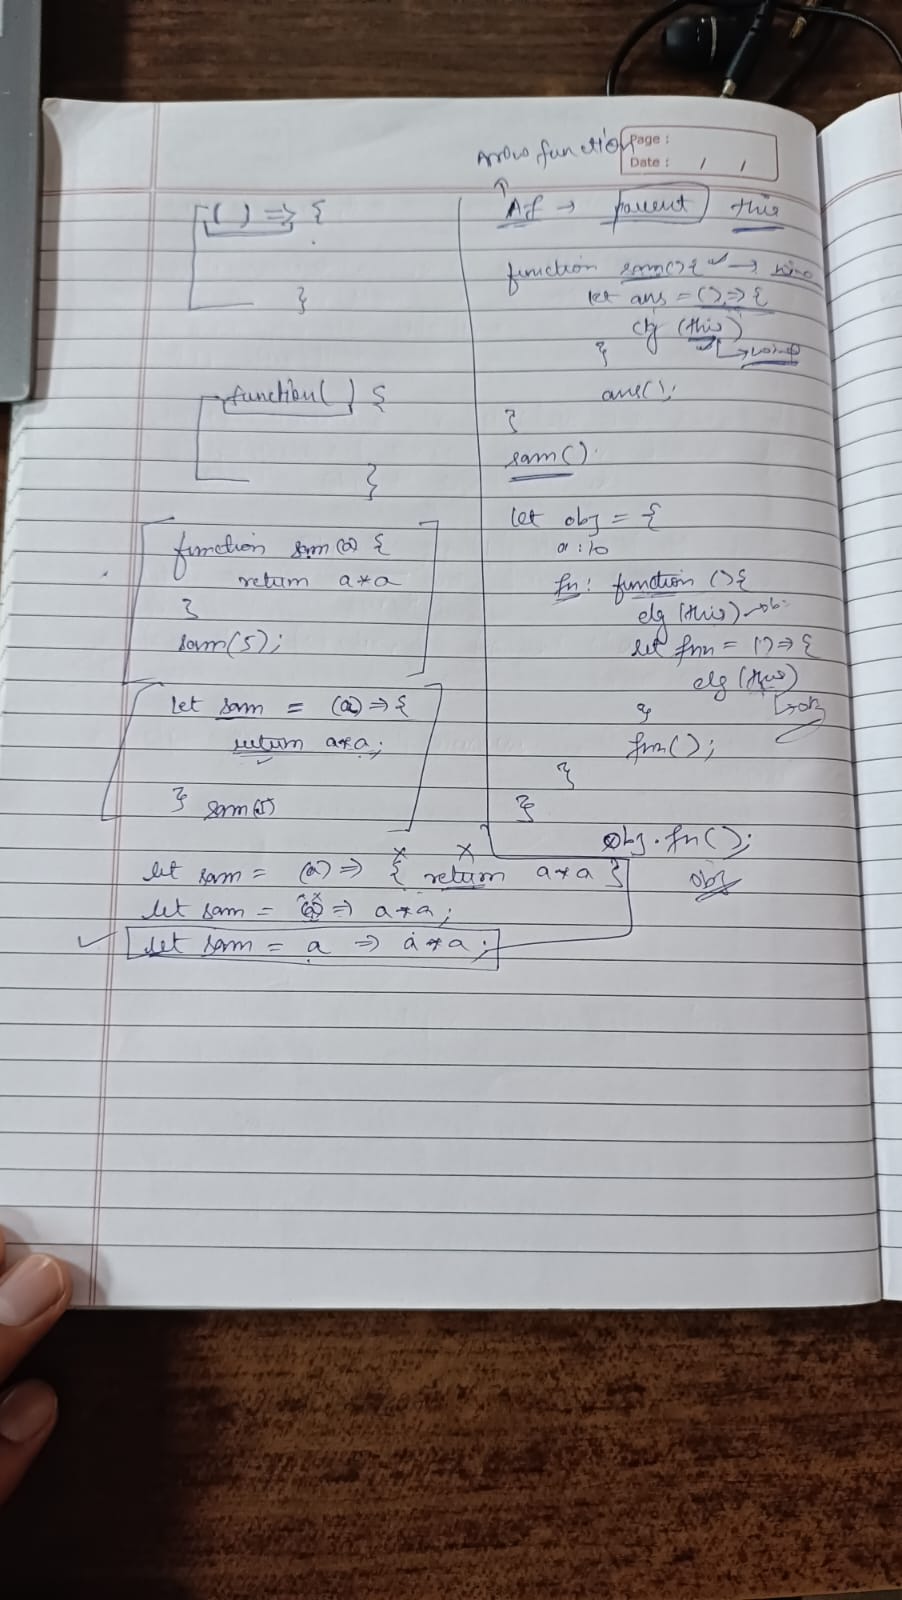 Arrow function
Page :
Date : / /
( ) => {
}
function( ) {
}
function sam(a) {
return a*a
}
sam(5);
let sam = (a) => {
return a*a;
} sam(5)
let sam = (a) => { return a*a }
let sam = (a) => a*a;
let sam = a => a*a;
AF → parent this
function sam() { →
let ans = () => {
clg (this)
}
ans();
}
sam()
let obj = {
a : 10
fn : function () {
clg (this) → ob
let fnn = () => {
clg (this)
→ obj
}
fnn();
}
}
obj.fn();
obj